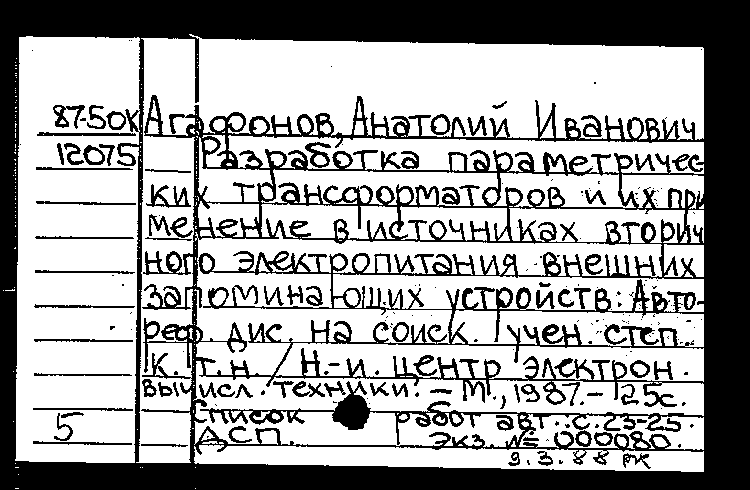 87-50К Агафонов, Анатолий Иванович
12075 Разработка параметричес-
ких трансформаторов и их при
менение в источниках вторич
ного электропитания внешних
запоминающих устройств: Авто-
реф. дис. на соиск. учен. степ.
к. т.н. / Н.-и. центр электрон.
вычисл. техники. - М., 1987. - 25с.
Список работ авт.: с.23-25.
5 ДСП. Экз. № 000080.
9.3.88 РК